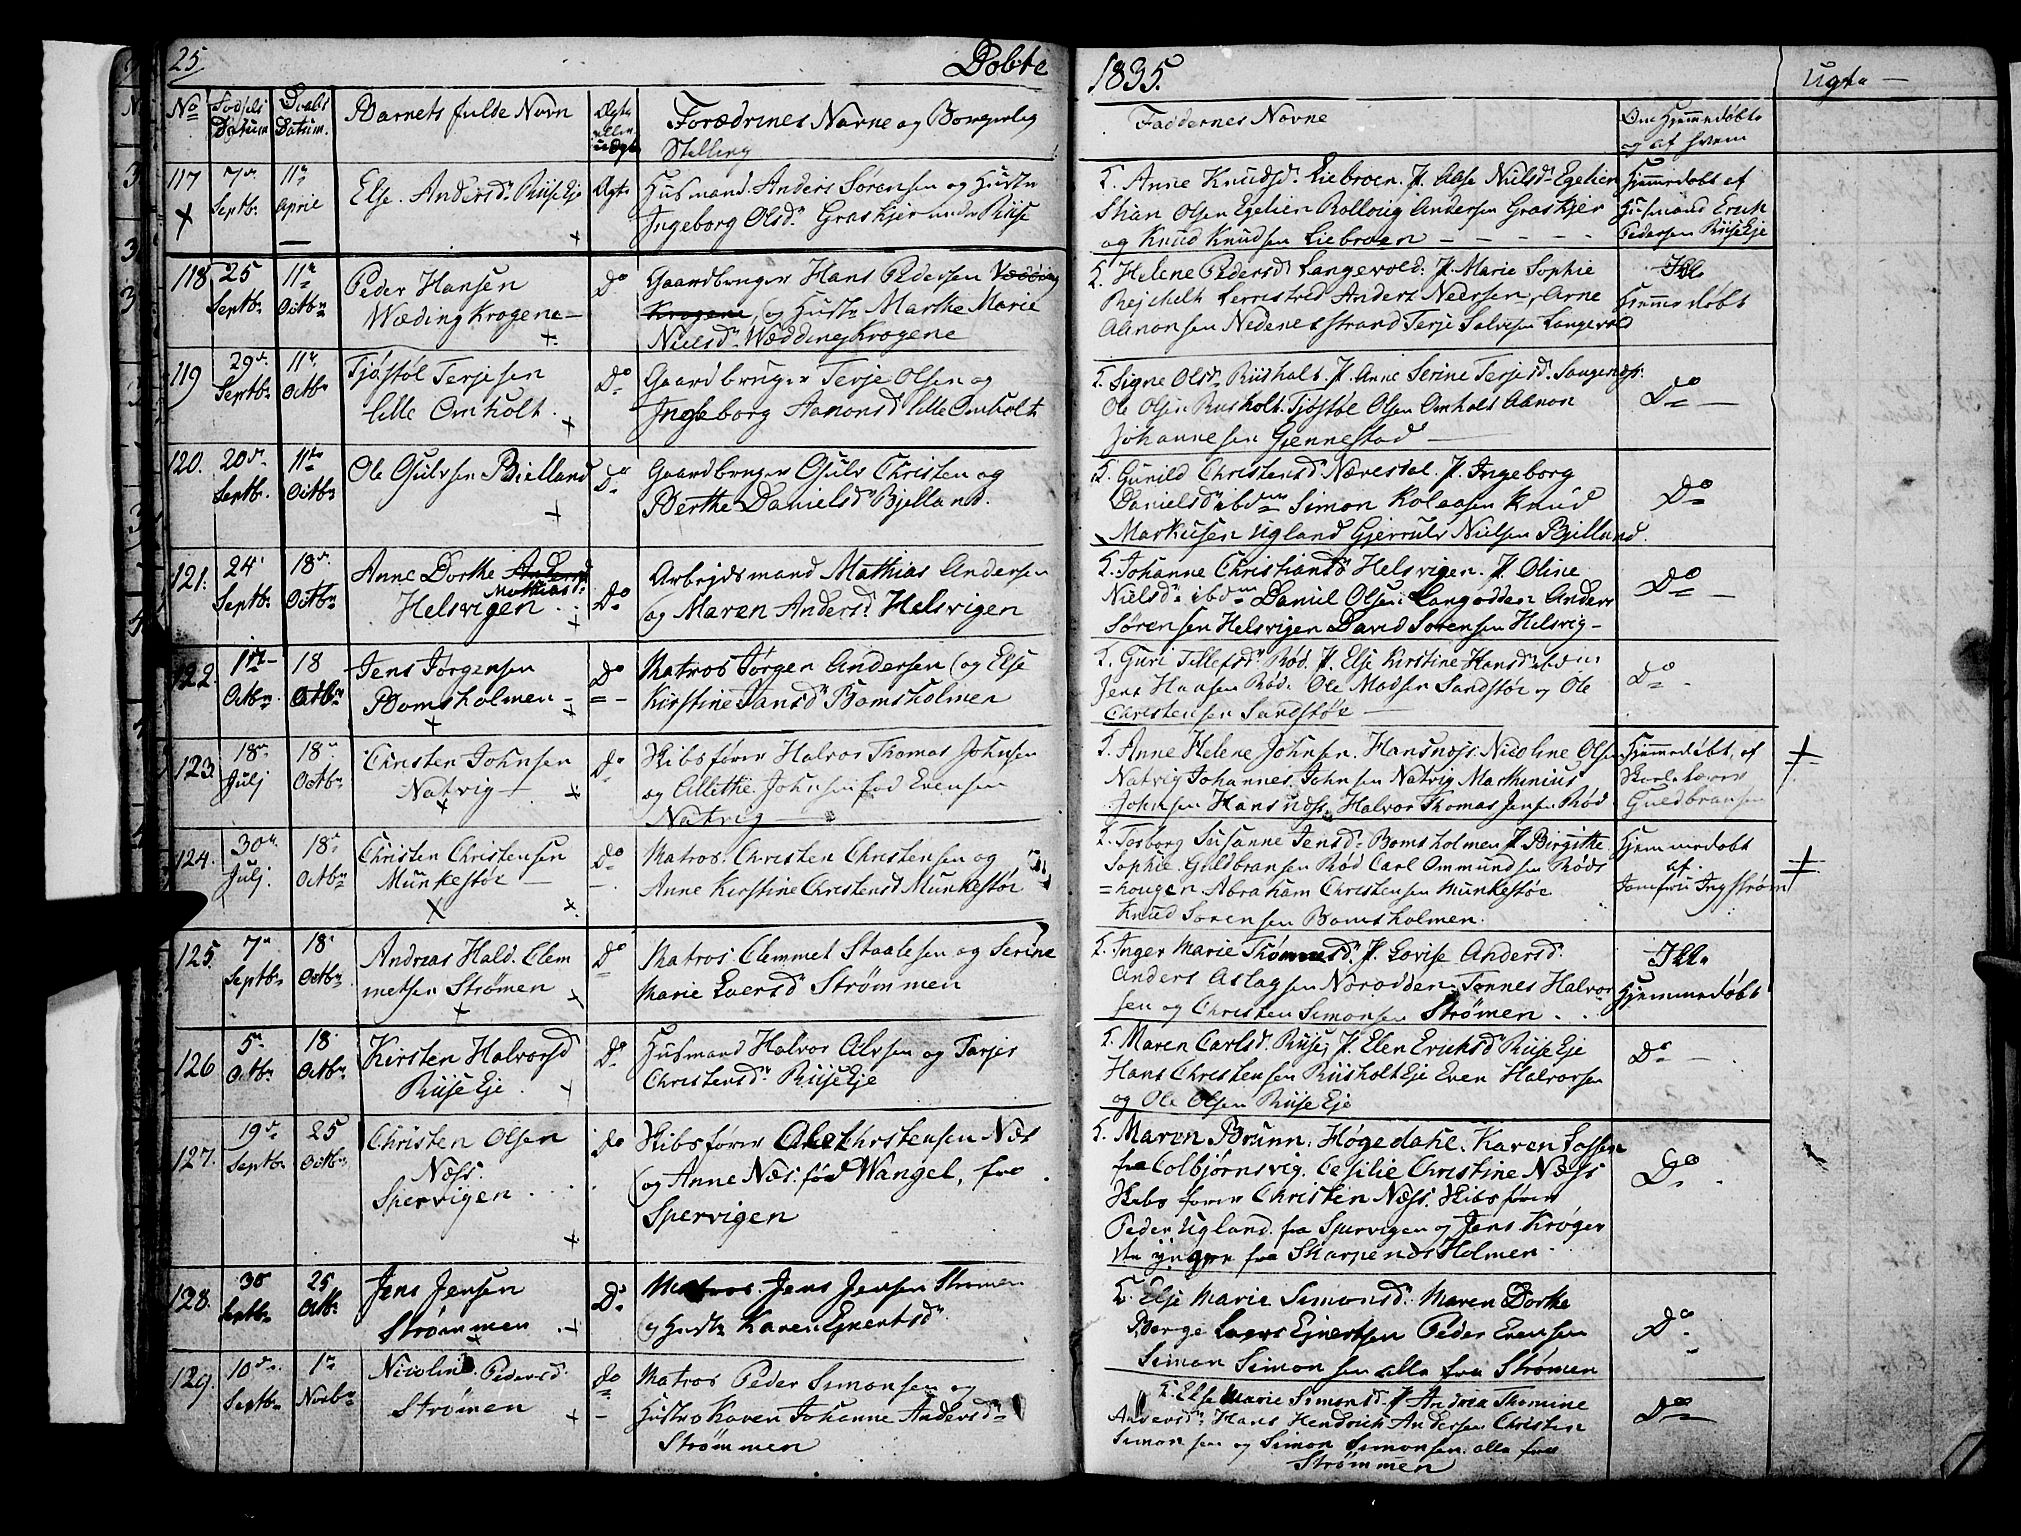 25 Døbte 1835. Ugte —
No Fødsels Datum Daabs Datum. Barnets fulde Navn Ægte eller uægte Forældrenes Navne og Borgerlig Stilling Faddernes Navne Om Hjemmedøbte og af hvem
117 7de Septbr 11te April Else Andersdr. Riise Eje Ægte Huusmand Anders Sørensen og Hustr
Ingeborg Olsdr. Graskjer under Riise
T. Anne Knudsdr. Liebroen. P. Aase Nielsdr Egelien
Stian Olsen Egelien Rollovig Andersen Graskjer
og Knud Knudsen Liebroen — — — —
Hjemmedøbt af
Husmand Erich
Pedersen Riise Eje
118 25 Septbr 11te Octbr Peder Hansen
Wæding Krogene —
Do Gaardbruger Hans Pedersen
Krogene, og Hustr Marthe Marie
Nielsdr. Wædding Krogene
T. Helene Pedersdr Langevold. P. Marie Sophie
Anders Neersen, Arne
Alenonsen Nedeneesstrand Terje Salvesen Langevold
Ikke
Hjemmedøbt
119 29de Septbr 11te Octbr Tjøstøl Terjesen
lille Omholt.
Do Gaardbruger Terje Olsen og
Ingeborg Aanonsdr lille Omholt
T. Signe Olsdr Riisholt. P. Anne Serine Terjesdr. Songenæs.
Ole Olsen Riisholt. Tjøstøl Olsen Omholt Aanon
Johannesen Gjennestad —
Do —
120. 20de Septbr. 11te Octbr Ole Gjulvsen Bielland
Do Gaardbruger Gjulv Christen og
Berthe Danielsdr Bjelland.
T. Gunild Christensdr Nærestal. P. Ingeborg
Danielsdr ibdm Simon Kolaasen Knud
Markusen Ugland Gjerrulv Nielsen Bielland.
Do
121. 24 Septbr 18de Octbr Anne Dorthe
Mathiasdr
Helsvigen
Do Arbejdsmand Mathias Andersen
og Maren Andersdr Helsvigen
T. Johanne Christiansdr Helsvigen. P. Oline
Nielsdr ibdm Daniel Olsen Langodden Anders
Sørensen Helsvigen David Sørensen Helsvig —
Do —
122. Octbr. 18 Octbr Jens Jørgensen
Bomsholmen —
Do Matros Jørgen Andersen og Else
Kirstine Jansdr Bomsholmen
T. Guri Tellefsdr Rød. P. Else Kirstine Hansdr ibdm
Jens Hansen Rød. Ole Madsen Sandstøe og Ole
Christensen Sandstøe —
Do
123. 18de Julj 18de Octbr Christen Johnsen
Natvig —
Do Skibsfører Halvor Thomas Johnsen
og Allethe Johnsen fød Evensen
Natvig —
T. Anne Helene Johnsen. Hansnæss Nicoline Olsen
Natvig Johannes Johnsen Natvig Marthinius
Johnsen Hansnæss Halvor Thomas Jensen Rød
Hjemmedøbt af
Guldbransen
124. 30te Julj. 18de Octbr Christen Christensen
Munkestøe —
Do Matros. Christen Christensen og
Anne Kirstine Christensdr Munkestøe
T. Torborg Susanne Jensdr Bomsholmen P. Birgithe
Sophie Guldbransen Rød Carl Ommundsen Røds
= hougen Abraham Christensen Munkestøe
Knud Sørensen Bomsholmen.
Hjemmedøbt
af
Jomfru Ingstrøm
125. 7de Septbr 18 Octbr. Andreas Hald. Clem
metsen Strømen
Do Matros. Clemmet Staalesen og Serine
Marie Evensdr Strømmen
T. Inger Marie Thommesdr. P. Lovise Andersdr.
Anders Aslagsen Norodden. Tønnes Halvor
sen og Christen Simonsen Strømen
Ikke
Hjemmedøbt
126 5te Octbr 18 Octbr. Kirsten Halvorsdr
Riise Eje
Do Husmand Halvor Alvsen og Tarjer
Christensdr Riise Eje
T. Maren Carlsdr. Riise, P. Elen Erichsdr Riise Eje
Hans Christensen Riisholt Eje Even Halvorsen
og Ole Olsen Riise Eje
Do —
127. 19de Septbr 25 Octbr. Christen Olsen
Næss.
Spervigen
Do Skibsfører Ole Christensen Næs
og Anne Næs. fød Wangel, fra
Spervigen
T. Maren Brunn. Høgedahl. Karen Tossen
fra Colbjørnsvig. Cesilie Christine Næss
Skibsfører Christen Næss. Skibsfører
Peder Ugland. fra Spervigen og Jens Krøger
den yngre fra Skarpenæs Holmen
Do
128. 30 Septbr 25 Octbr Jens Jensen
Strømmen
Do Matros. Jens Jensen Strømen
og Hustr Karen Ejnertsdr
T. Else Marie Simonsdr. Maren Dorthe
Børge Lagers Ejnertsen Peder Evensen
Simon Simonsen alle fra Strømen
Do
129. 10de Septbr 1te Novbr Nicoline Pedersdr.
Strømen
Do Matros Peder Simonsen og
Hustro Karen Johanne Andersdr
Strømmen
T. Else Marie Simonsdr. P. Andrea Thomine
Andersdr. Hans Hendrich Andersen Christen
Simonsen og Simon Simonsen alle fra
Strømmen
Do